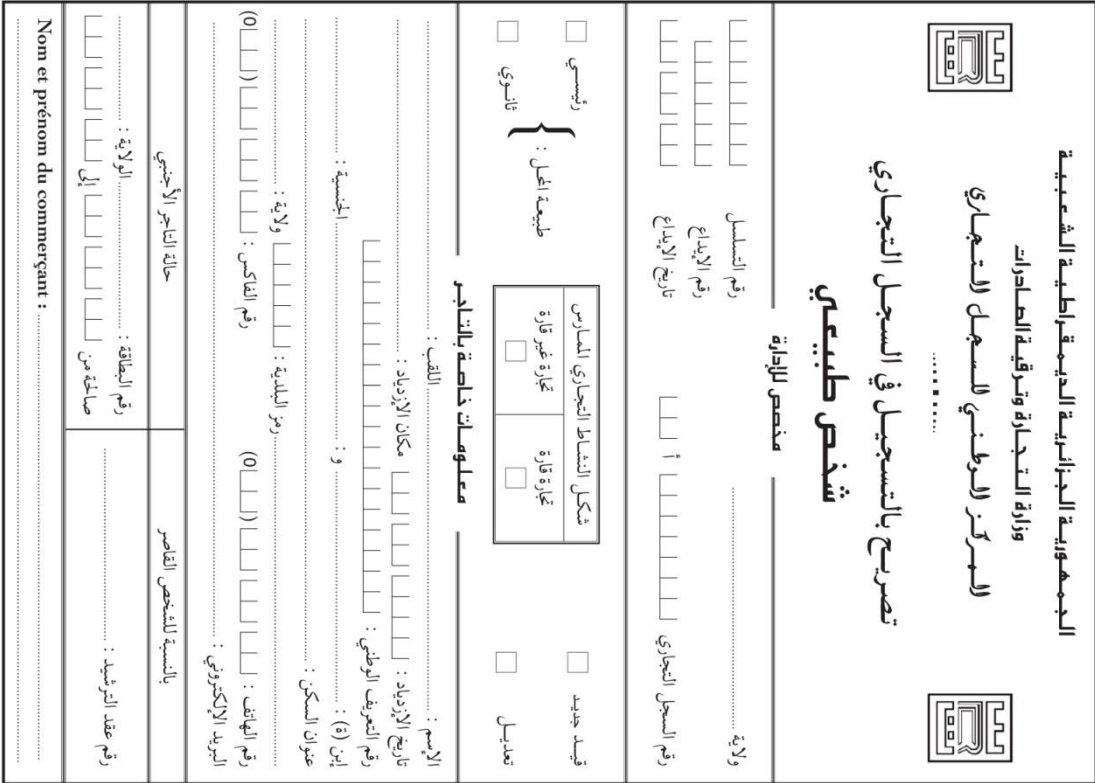 الجمهورية الجزائرية الديمقراطية الشعبية
وزارة التجارة وترقية الصادرات
المركز الوطني للسجل التجاري
تصريح بالتسجيل في السجل التجاري
شخص طبيعي
مخصص للإدارة
ولاية
رقم التسلسل
رقم الإيداع
رقم السجل التجاري أ
تاريخ الإيداع
قيد جديد
تعديل
شكل النشاط التجاري الممارس
تجارة قارة
تجارة غير قارة
طبيعة المحل :
رئيسي
ثانوي
معلومات خاصة بالتاجر
الإسم : اللقب :
تاريخ الإزدياد : مكان الإزدياد
رقم التعريف الوطني :
إبن (ة) : و : الجنسية :
عنوان السكن :
رمز البلدية : ولاية :
رقم الهاتف : (0) رقم الفاكس : (0)
البريد الإلكتروني :
بالنسبة للشخص القاصر
حالة التاجر الأجنبي
رقم عقد الترشيد :
رقم البطاقة : الولاية :
صالحة من إلى
Nom et prénom du commerçant :